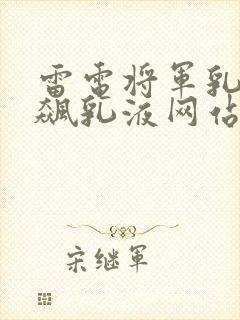 雷电将军乳
飙乳液网站
宋继军